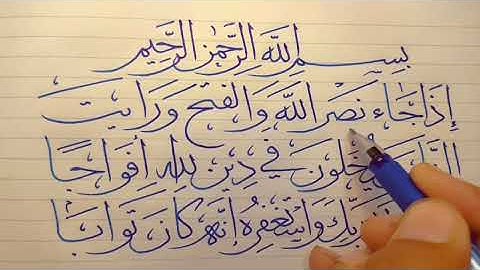 بِسْمِ اللَّهِ الرَّحْمٰنِ الرَّحِيمِ
إِذَا جَاءَ نَصْرُ اللَّهِ وَالْفَتْحُ وَرَاَيْتَ
فِي دِينِ اللَّهِ اَفْوَاجًا
رَبِّكَ وَاسْتَغْفِرْهُ إِنَّهُ كَانَ تَوَّابًا